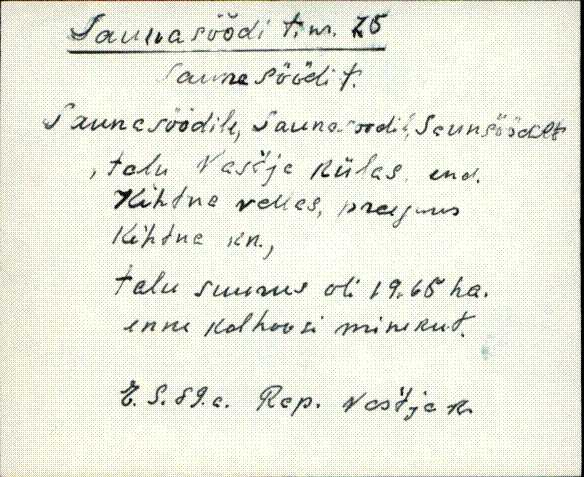 Saunasöödi t. nr. 25
Saunasöödi t.
Saunasöödile, Saunasoodil, Saunsöödilt
, talu Vastja külas. end.
Kihtna vallas, praegus
Kihtna kn.,
talu suurus oli 19.65 ha.
enne kolhoosi minekut.
E. S. 89. a. Rap. Vastja k.